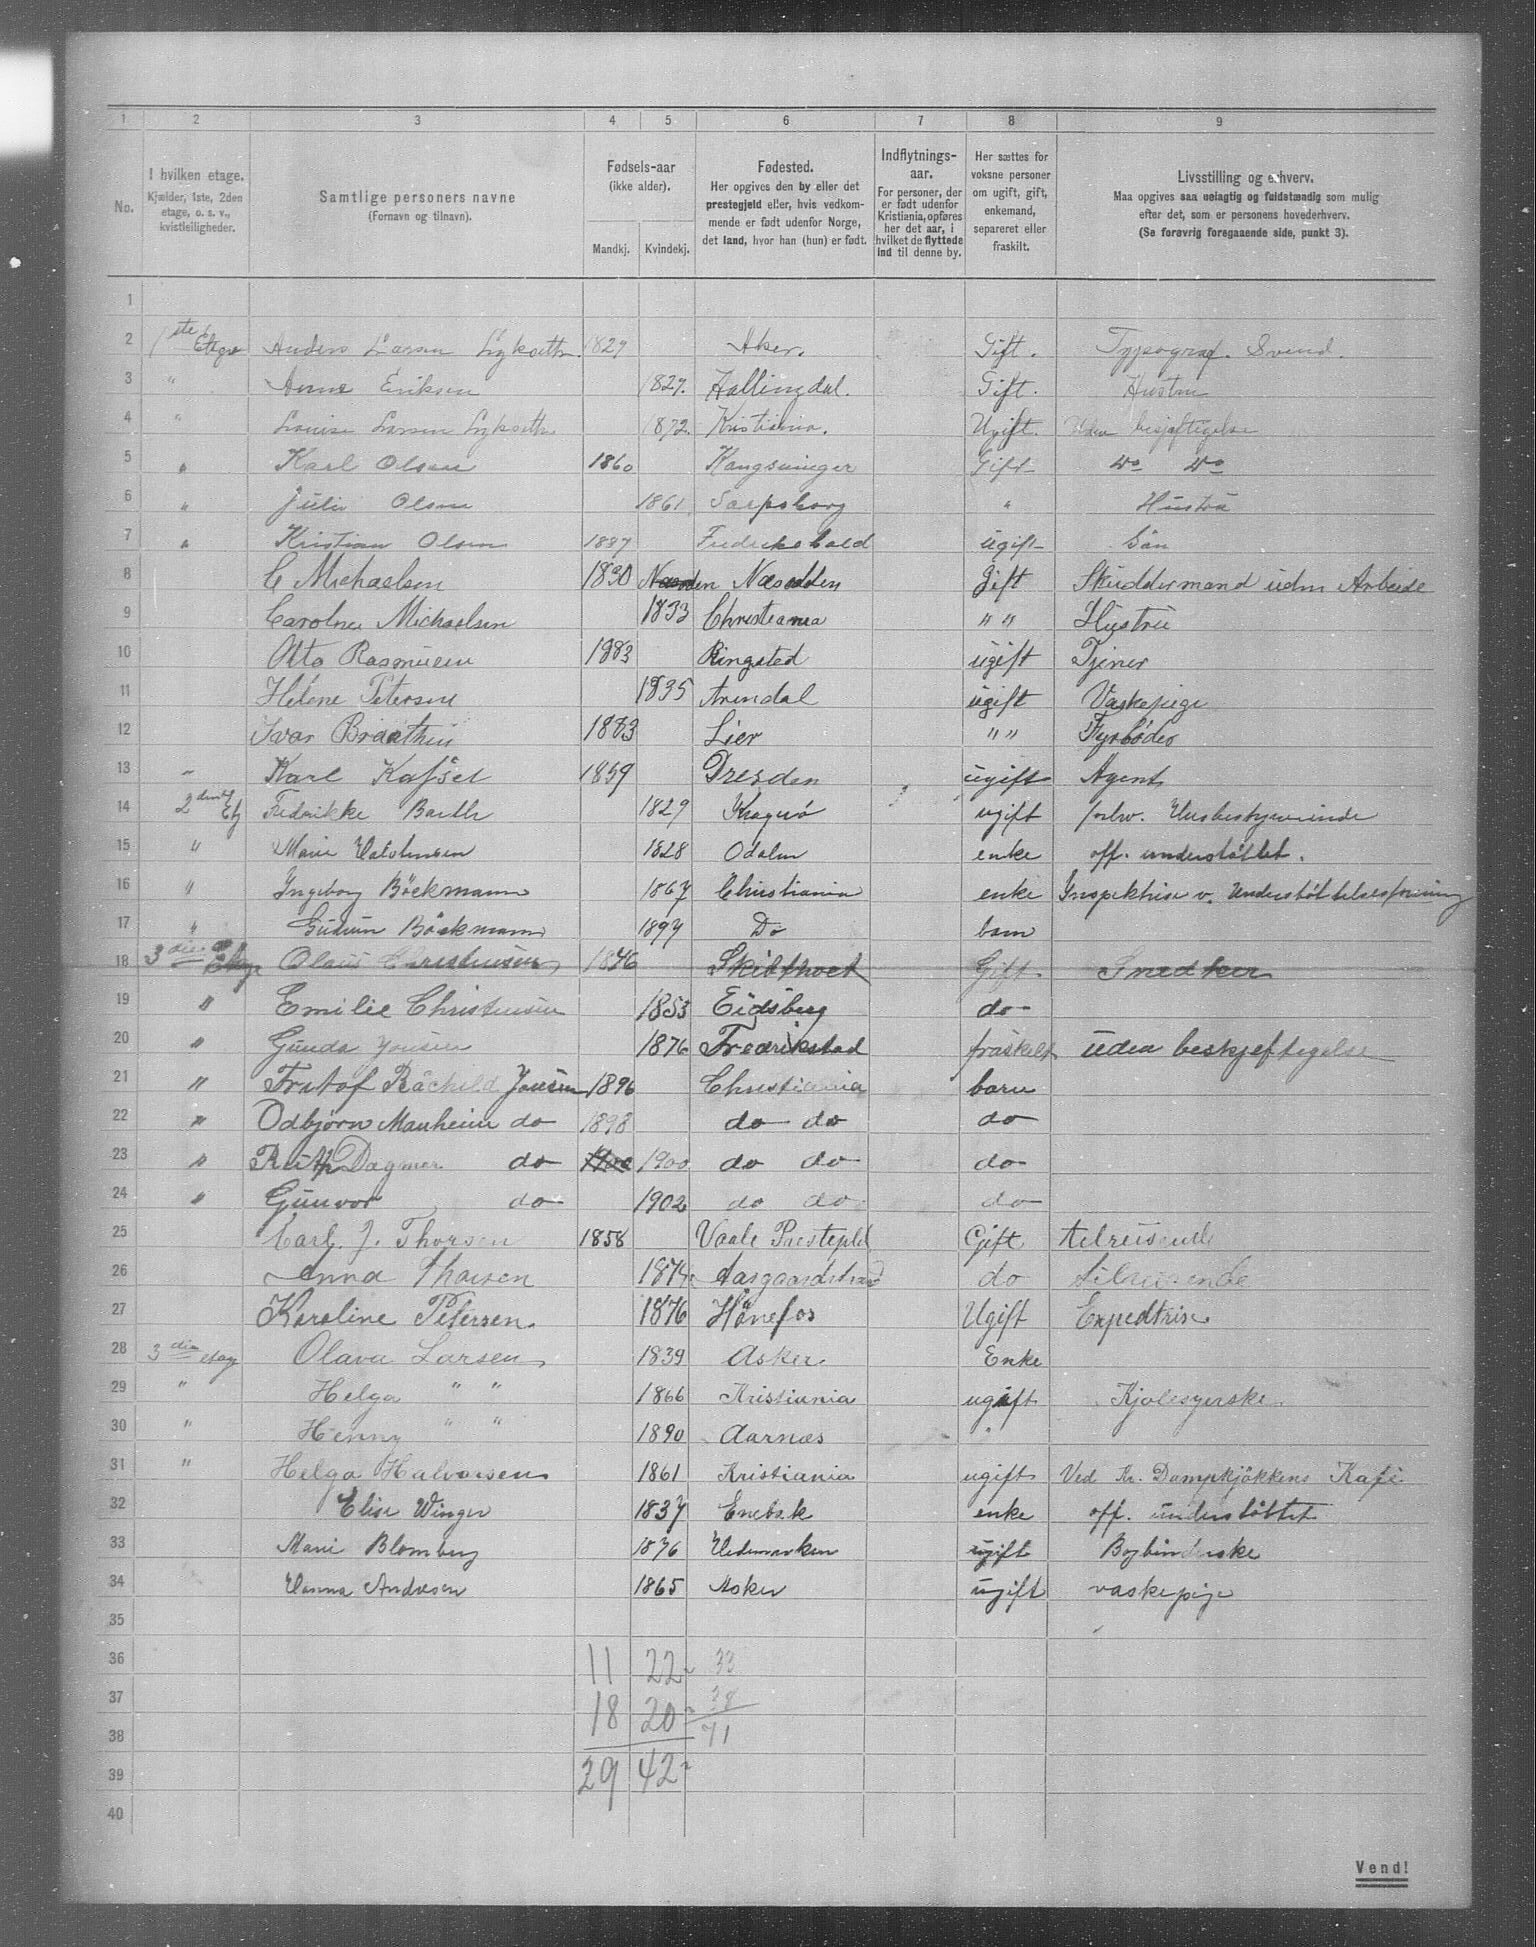 1 2 3 4 5 6 7 8 9
No.
I hvilken etage.
Kjælder, 1ste, 2den
etage, o. s. v.,
kvistleiligheder.
Samtlige personers navne
(Fornavn og tilnavn).
Fødsels-aar
(ikke alder).
Mandkj. Kvindekj.
Fødested.
Her opgives den by eller det
prestegjeld eller, hvis vedkom-
mende er født udenfor Norge,
det land, hvor han (hun) er født.
Indflytnings-
aar.
For personer, der
er født udenfor
Kristiania, opføres
her det aar, i
hvilket de flyttede
ind til denne by.
Her sættes for
voksne personer
om ugift, gift,
enkemand,
separeret eller
fraskilt.
Livsstilling og erhverv.
Maa opgives saa nøiagtig og fuldstændig som mulig
efter det, som er personens hovederhverv.
(Se forøvrig foregaaende side, punkt 3).
1
2 1ste Etage Anders Larsen Lykseth 1829 Aker. Gift. Typograf. Svend.
3 " Anne Eriksen 1827. Hallingdal. Gift. Hustru
4 " Louise Larsen Lykseth 1872. Kristiania. Ugift. Uden besjæftigelse
5 " Karl Olsen 1860 Kongsvinger Gift do do
6 " Julie Olsen 1861 Sarpsborg " Hustru
7 " Kristian Olsen 1887 Fredrikshald ugift Søn
8 C Michaelsen 1830 Næsodden Gift Skuddermand uden Arbeide
9 Caroline Michaelsen 1833 Christiania " " Hustru
10 Otto Rasmusen 1883 Ringsted ugift Tjener
11 Helene Petersen 1835 Arendal ugift Vaskepige
12 Ivar Braathen 1883 Lier " " Fyrbøder
13 " Karl 1859 Dresden ugift Agent
14 2den Etg Fredrikke Barth 1829 Kragerø ugift forhv. Husbestyrerinde
15 " Marie 1828 Odalen enke off. understøttet.
16 " Ingeborg Bøckmann 1867 Christiania enke Inspektrise v. Understøttelsesforening
17 " Gudrun Bøckmann 1897 Do barn
18 3die Etage Olaus Christensen 1846 Skibthvet Gift Snedker
19 " Emilie Christensen 1853 Eidsberg do
20 " Gunda Jonsen 1876 Fredrikstad fraskilt uden beskjeftigelse
21 " Fritof Jonsen 1896 Christiania barn
22 " Odbjørn Manheim do 1898 do do do
23 " Ruth Dagmar do 1900 1900 do do do
24 " Gunvor do 1902 do do do
25 Carl. J. Thorsen 1858 Vaale Prestegld Gift tilreisend
26 Anna Thorsen 1874 Aasgaardstrand do tilreisende
27 Karoline Petersen. 1876 Hønefos Ugift Expeditrise
28 3die etage Olava Larsen 1839 Asker Enke
29 " Helga " " 1866 Kristiania ugift Kjolesyerske
30 " Henny " " 1890 Aarnæs "
31 " Helga Halvorsen 1861 Kristiania ugift Ved Kr. Dampkjøkkens Kafé
32 Elise Winger 1837 Enebak enke off. understøttet
33 Marie Blomberg 1876 Hedemarken ugift Bogbinderske
34 Hanna Andresen 1865 Asker ugift vaskepige
35
36 11 22 - 33
37 18 20 - 38
38 71
39 29 42 -
40
Vend!